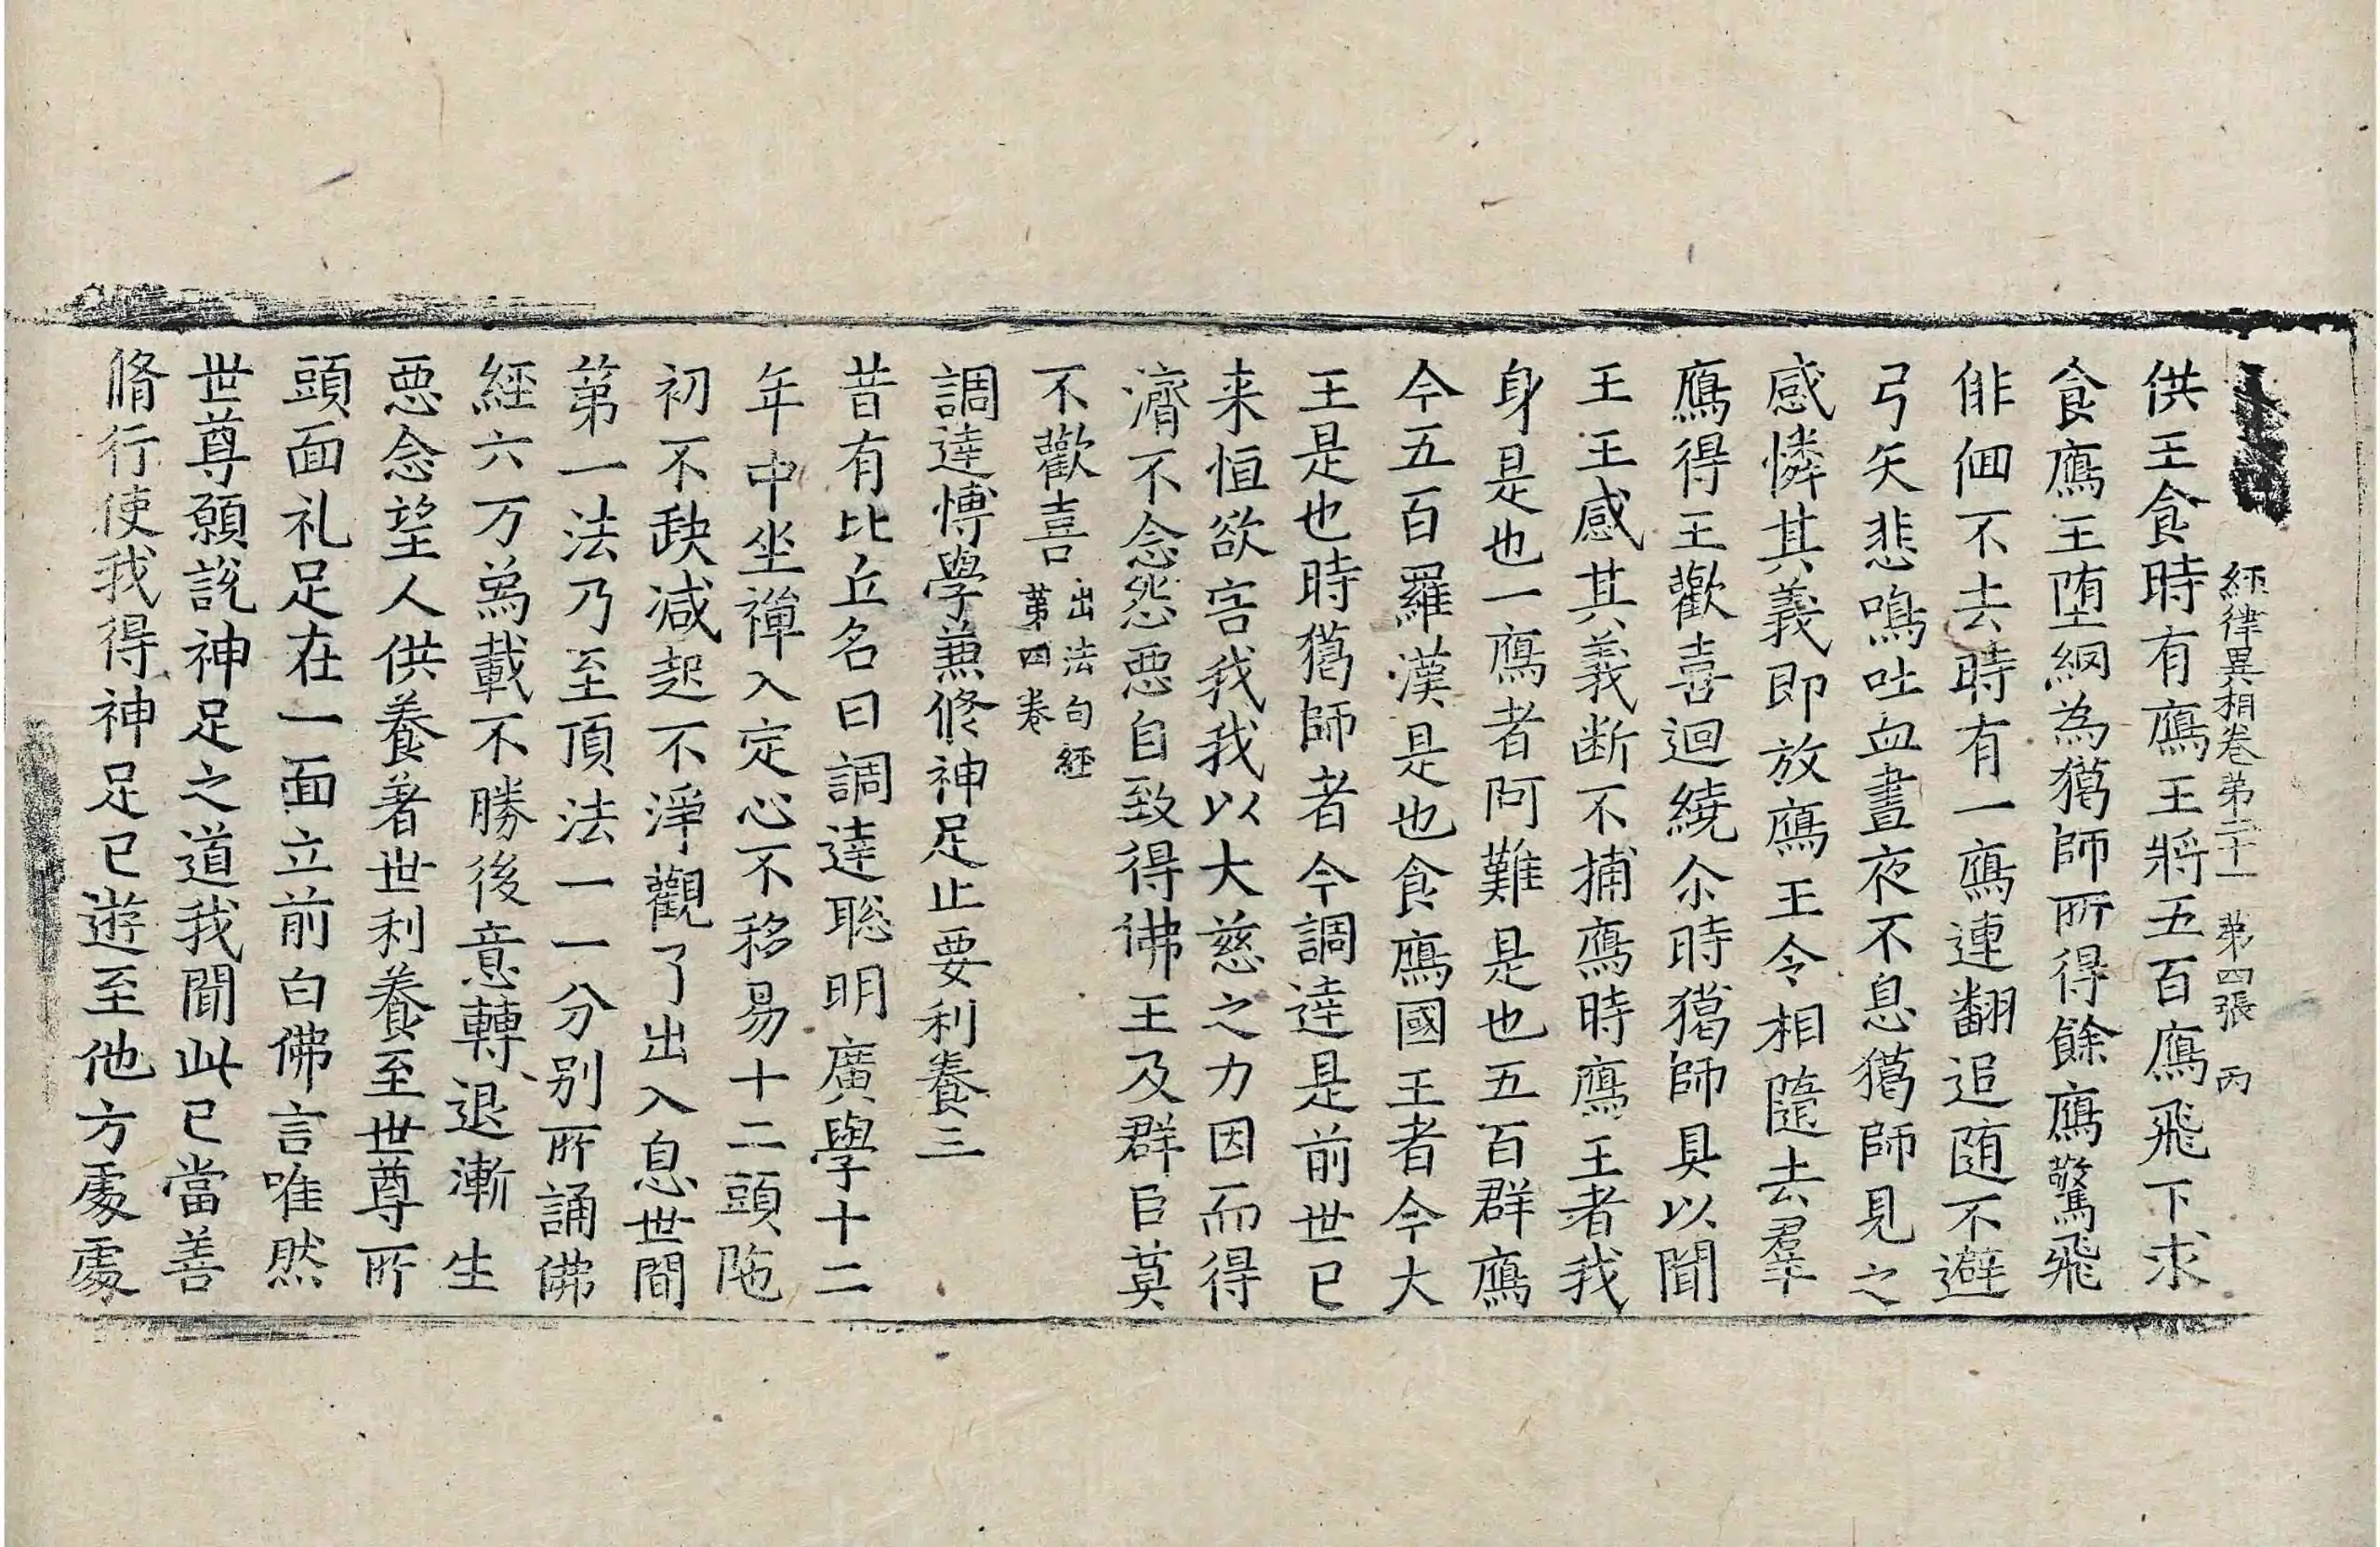 經律異相卷第二十一 第四張 丙
供王食時有鴈王將五百鴈飛下求
食鴈王堕網為獦師所得餘鴈驚飛
俳佪不去時有一鴈連翻追随不避
弓矢悲鳴吐血晝夜不息獦師見之
感憐其義即放鴈王令相隨去羣
鴈得王歡喜迴繞尒時獦師具以聞
王王感其義断不捕鴈時鴈王者我
身是也一鴈者阿難是也五百群鴈
今五百羅漢是也食鴈國王者今大
王是也時獦師者今調逹是前世已
来恒欲害我我以大慈之力因而得
濟不念怨惡自致得佛王及群臣莫
不歡喜 出法句經
第四卷
調逹博學兼修神足止要利養三
昔有比丘名曰調逹聦明廣學十二
年中坐禪入定心不移易十二頭陁
初不缺减起不淨觀了出入息世間
第一法乃至頂法一一分别所誦佛
經六万為載不勝後意轉退漸生
惡念望人供養著世利養至世尊所
頭面礼足在一面立前白佛言唯然
世尊願說神足之道我聞此已當善
脩行使我得神足已遊至他方處處